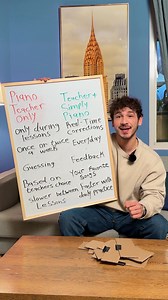 Piano Teacher Only
Teacher + Simply Piano
only during lessons
Real-Time corrections
once or twice a week
Everyday
Guessing
Feedback
Based on teachers choice
Your favorite songs
slower between lessons
faster with daily practice